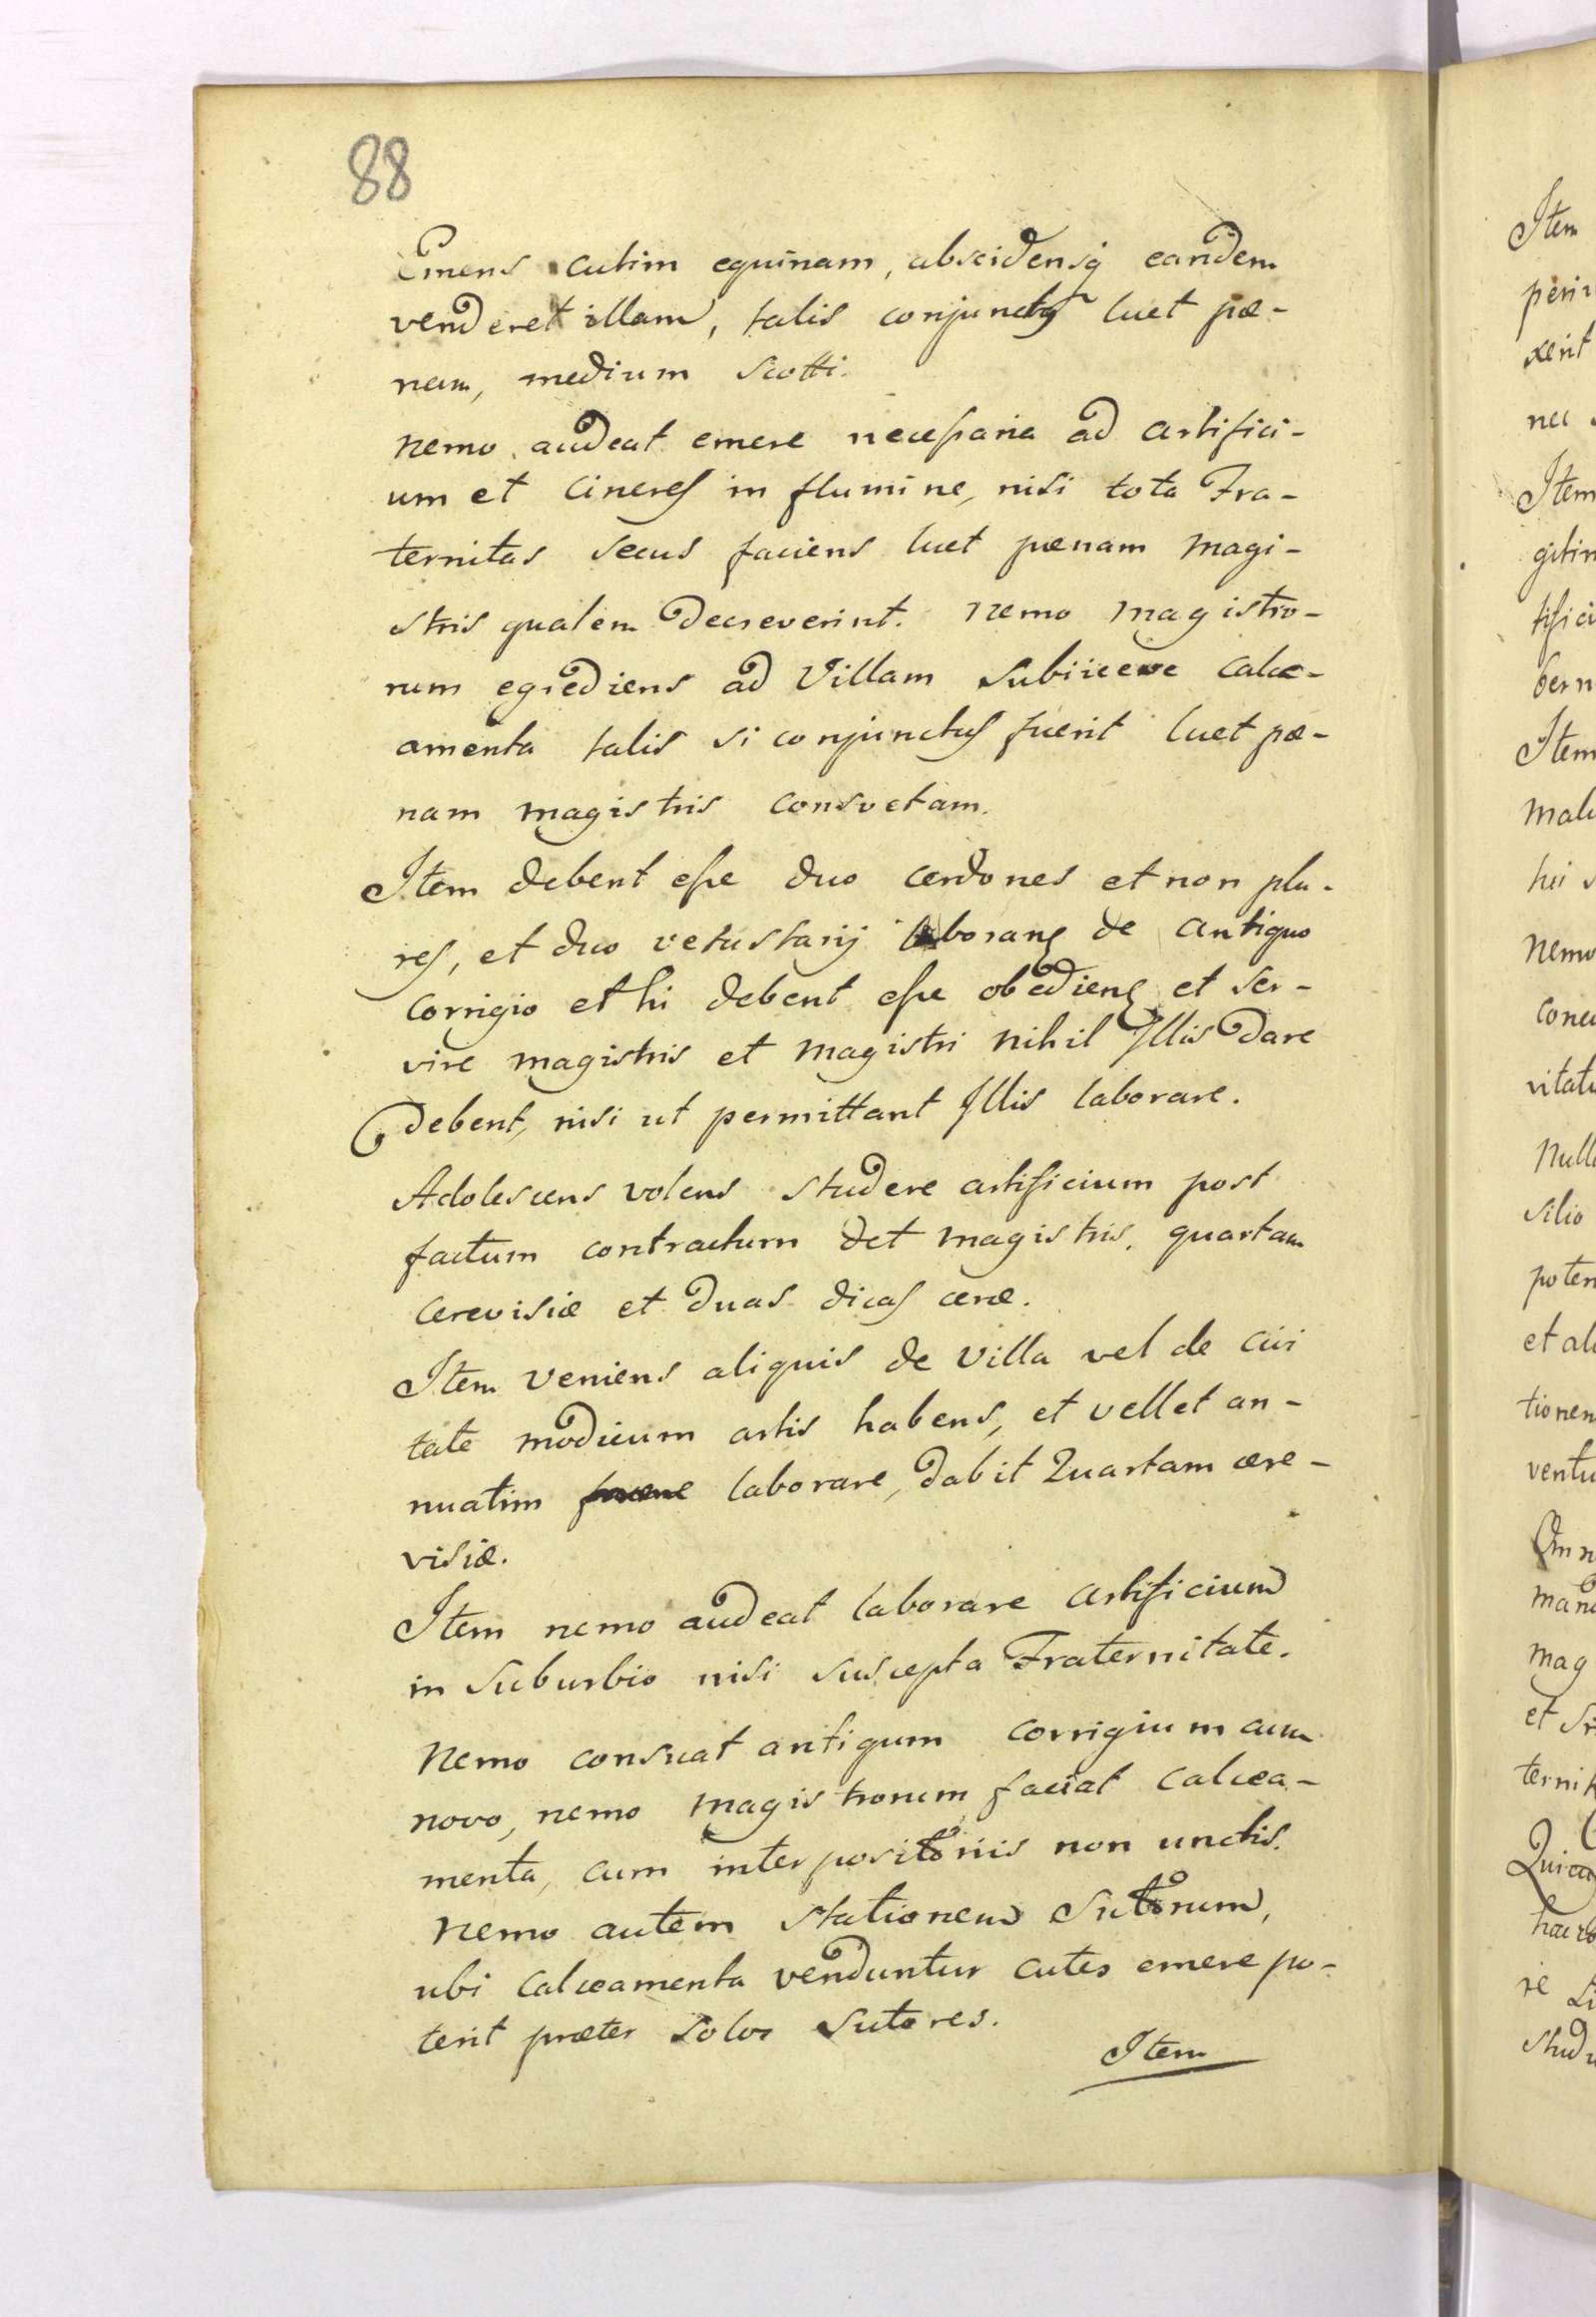 88
Emens cutim equinam, abscidensq eandem
venderet illam, talis conjunctus luet pæ-
nam, medium scotti.
Nemo audeat emere necessaria ad artifici-
um et cineres in flumine, nisi tota Fra-
ternitas secus faciens luet pænam magi-
stris qualem decreverint. Nemo magistro-
rum egrediens ad Villam subiicere calce-
amenta talis si conjunctus fuerit luet pæ-
nam magistris consvetam.
Item debent esse duo cerdones et non plu-
res, et duo vetustarij laborantes de antiquo
corrigio et hi debent esse obedientes et ser-
vire magistris et magistri nihil Illis dare
debent, nisi ut permittant Illis laborare.
Adolescens volens studere artificium post
factum contractum det magistris, quartam
cerevisiæ et duas dicas ceræ.
Item veniens aliquis de villa vel de civi
tate modicum artis habens, et vellet an-
nuatim laborare, dabit Quartam cere-
visiæ.
Item nemo audeat laborare artificium
in suburbio nisi suscepta Fraternitate.
Nemo consuat antiqum corrigium cum
novo, nemo magistrorum faciat calcea-
menta, cum interpositoriis non unctis.
Nemo autem stationem sutorum,
ubi calceamenta venduntur cutes emere po-
terit præter solos sutores.
Item
Item
perir
xerit
nec
Item
gitim
tifici
bern
Item
malu
hii s
Nemo
concu
vitatu
Null
silio
poten
et ali
tionem
ventu
Omn
mand
mag
et si
ternit
Quicu
hac
re Li
stud